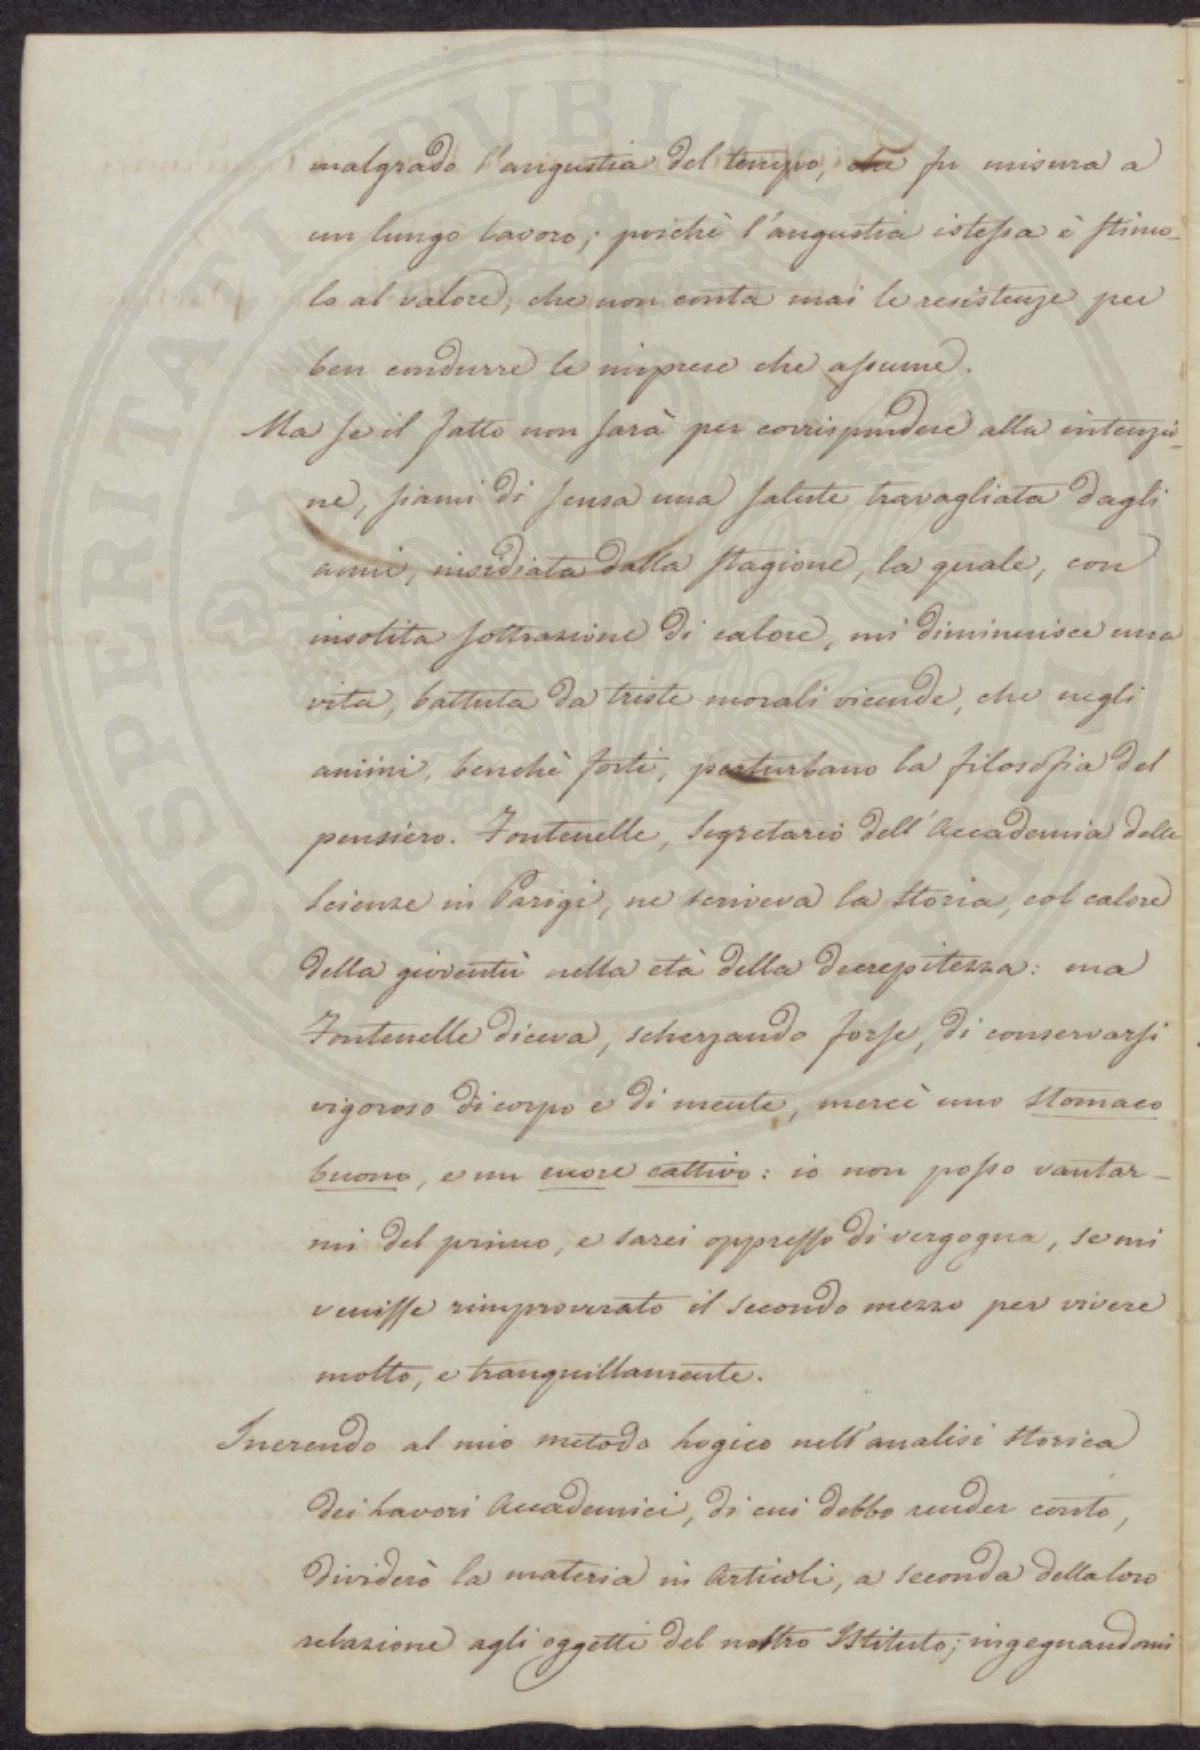 malgrado l'angustia del tempo, che fu misura a
un lungo lavoro; poichè l'angustia istessa è stimo-
lo al valore, che non conta mai le resistenze per
ben condurre le imprese che assume.
Ma se il fatto non sarà per corrispondere alla intenzio-
ne, siami di scusa una salute travagliata dagli
anni, insidiata dalla stagione, la quale, con
insolita sottrazione di calore, mi diminuisce una
vita, battuta da triste morali vicende, che negli
animi, benchè forti, perturbano la filosofia del
pensiero. Fontenelle, Segretario dell'Accademia delle
Scienze in Parigi, ne scriveva la storia, col calore
della gioventù nella età della decrepitezza: ma
Fontenelle diceva, scherzando forse, di conservarsi
vigoroso di corpo e di mente, mercè uno stomaco
buono, e un cuore cattivo: io non posso vantar-
mi del primo, e sarei oppresso di vergogna, se mi
venisse rimproverato il secondo mezzo per vivere
molto, e tranquillamente.
Inerendo al mio metodo logico nell'analisi storica
dei lavori Accademici, di cui debbo render conto,
dividerò la materia in Articoli, a seconda della loro
relazione agli oggetti del nostro Istituto; ingegnandomi
PROSPERITATI PUBLICAE AUGENDAE